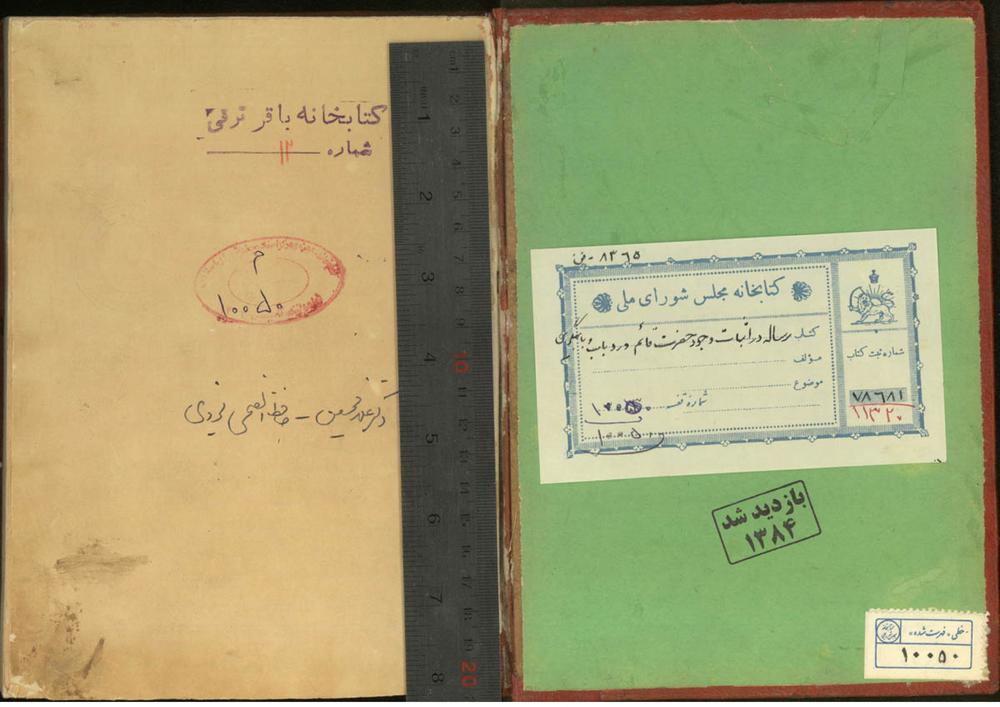 ۸۳۶۵ - ف
کتابخانه مجلس شورای ملی
کتاب رساله در اثبات وجود حضرت قائم و رد باب و
مؤلف
موضوع
شماره قفسه ۱۰۰۵۰
۱۰۰۵۰
شماره ثبت کتاب
۷۸۶۸۱
۱۱۳۲۰
بازدید شد
۱۳۸۴
خطی - فهرست شده
۱۰۰۵۰
کتابخانه باقر ترقی
شماره ۱۲
م
۱۰۰۵۰
دکتر
cm 1 2 3 4 5 6 7 8 9 10 14 15 16 17 18 19 20
1 2 3 4 5 6 7 8